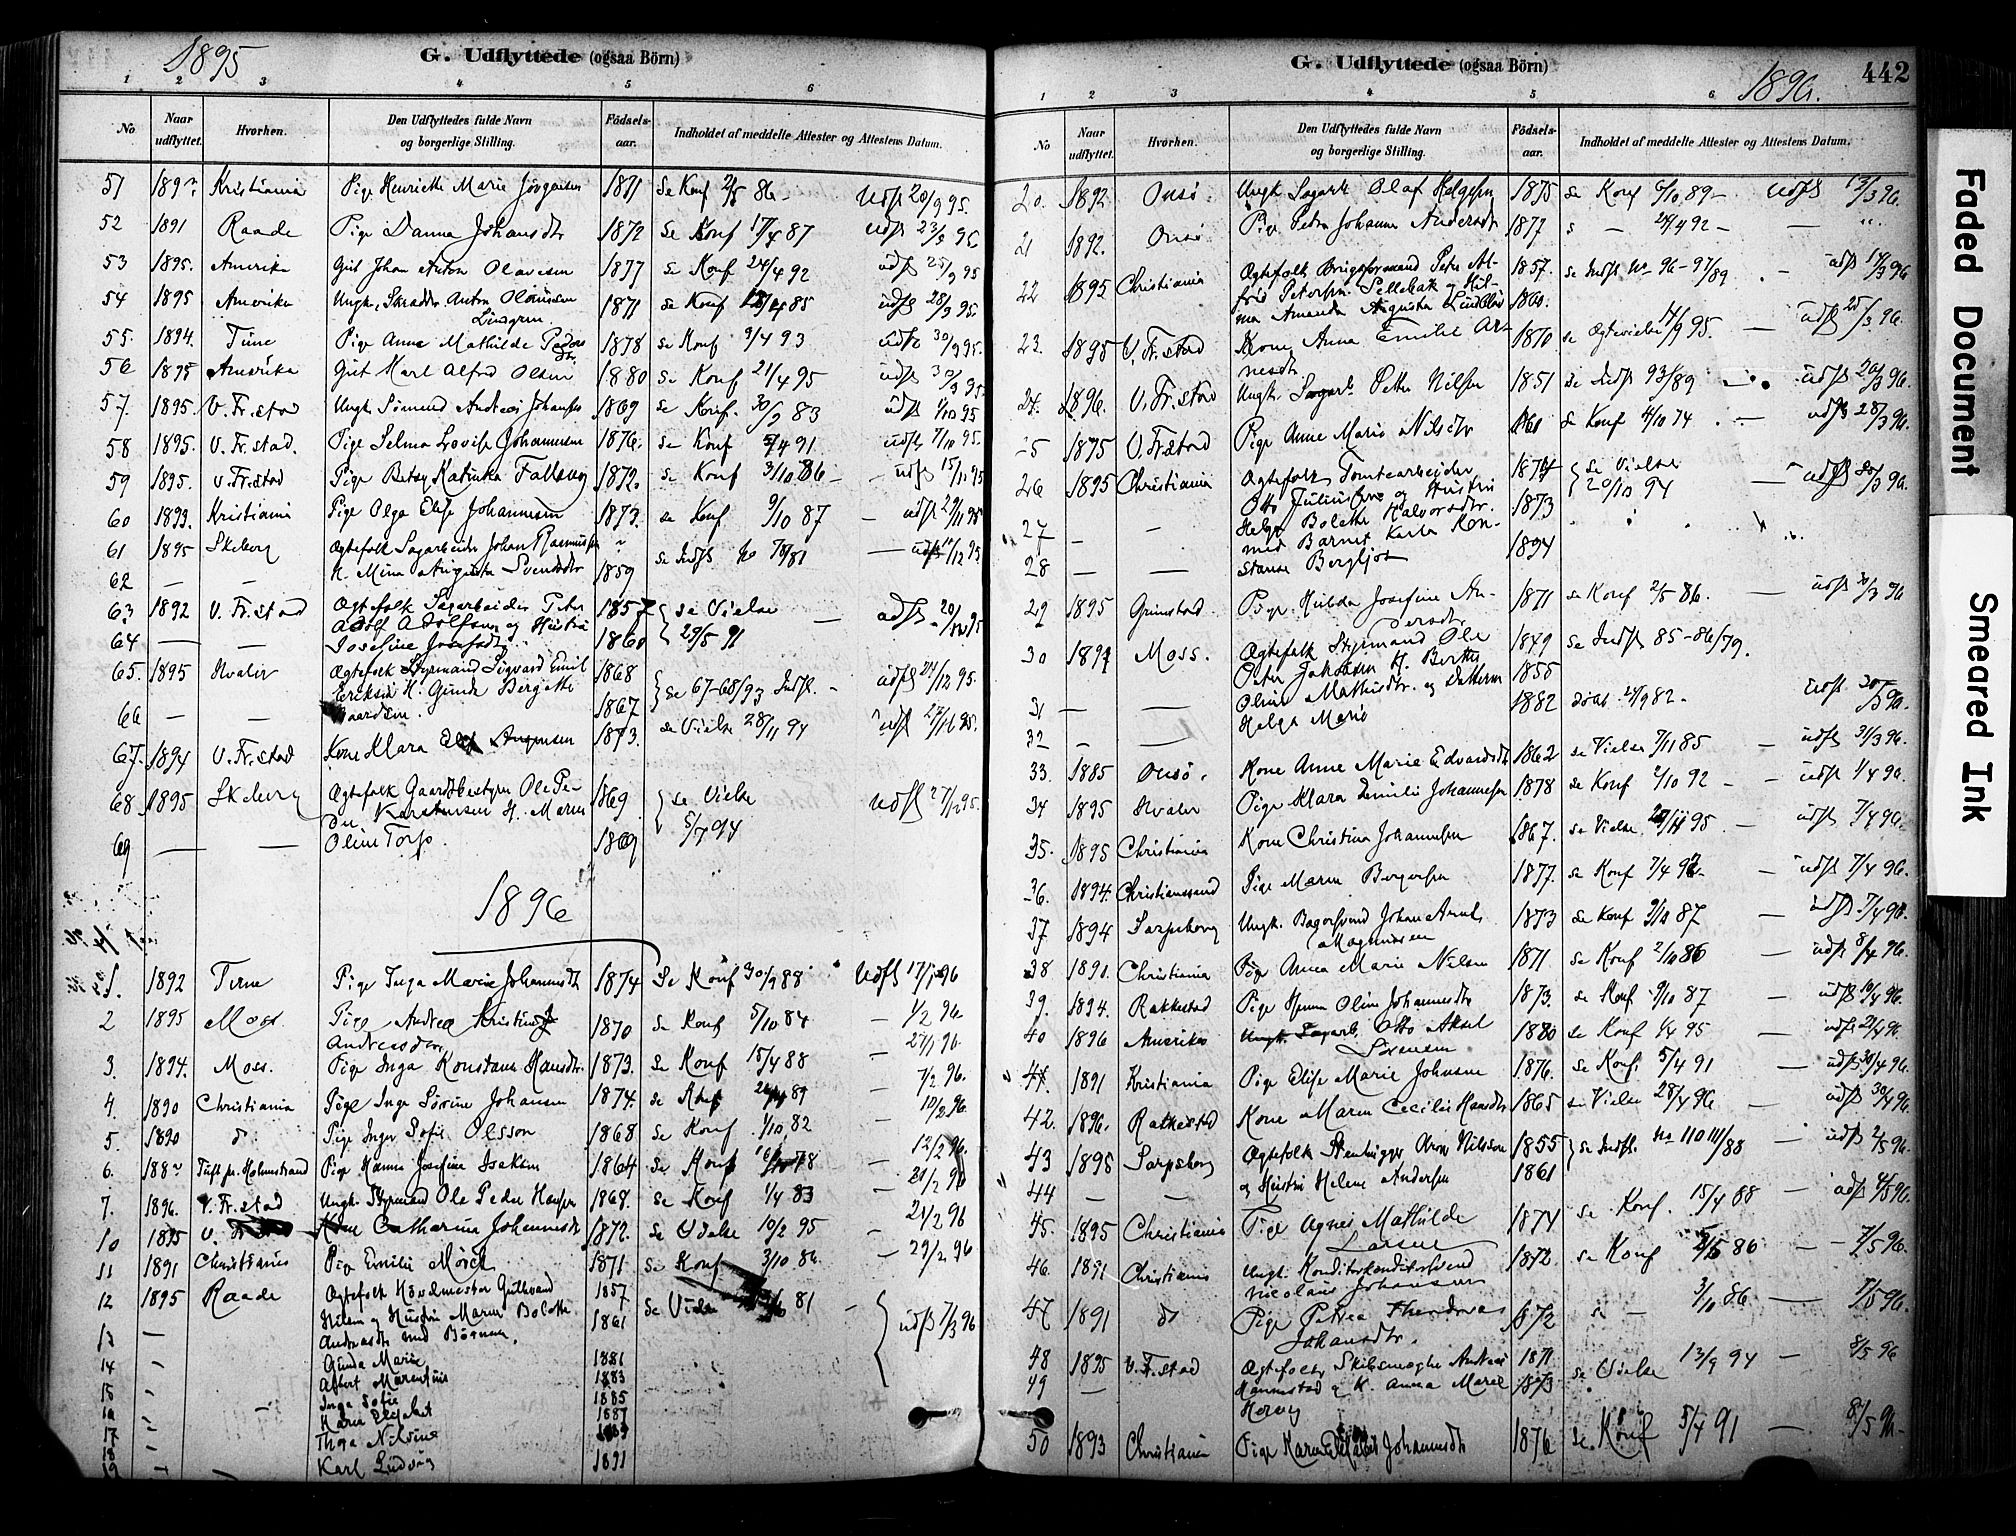 1895
G. Udflyttede (ogsaa Börn)
1 2 3 4 5 6
No
Naar udflyttet.
Hvorhen.
Den Udflyttedes fulde Navn og borgerlige Stilling.
Födsels-aar.
Indholdet af meddelte Attester og Attestens Datum.
51 Kristiania Pige Henriette Marie 1871 Se Konf 86 Udst 20/9 95.
52 1891 Raade Pige Johansdtr 1872 Se Konf 17/4 87 Udst 96
53 1895. Amerika Gut Johan Anton Olavesen 1877 Se Konf 24/4 92 udst 25/9 95
54 1895 Amerika Ungk. Skrædder Anton 1871 se Konf 85 udst 28/9 95.
55. 1894. Tune Pige Anna Mathilde 1878 se Konf 9/4 93 udst 30/9 95.
56 1895 Amerika Gut Karl Alfred Olsen 1880 Se Konf 21/4 95 udst
57. 1895. V. Fr.stad Ungk Andreas 1869 Se Konf. 83 udst 1/10 95
58 1895. V. Fr.stad. Pige Selma Lovise Johannesen 1876. Se Konf 5/4 91. udst 7/10 95.
59 1895. V. Fr.stad Pige Betsy Katinka 1872. Se Konf 3/10 86 – udst 15/11 95
60 1893. Kristiania Pige Olga Elise Johannesen 1873. se Konf 9/10 87 – udst 29/11 95
61 1895 Skeberg Ægtefolk Sagarbeider Johan Rasmussen
se Indfl No 78/81 – udst 12 95
62 — — H. Mina Augusta Svendsdtr 1859
63 1892 V. Fr.stad Ægtefolk Sagarbeider Peter 1857 se Vielse – udst 95
Adolf Adolfsen og Hustru
64 — — Josefine Josefsdtr 1860 29/5 91
65. 1895 Hvaler Ægtefolk Styrmand Sigvard Emil 1868 udst 21/12 95.
Eriksen H. Gunda Bergitte se 67-68/93 Indfl. –
66 — — 1867
67. 1894 V. Fr.stad Kone Klara 1873. se Vielse 28/11 94 udst 95.
68 1895 Skeberg Ægtefolk Gaardbestyrer Ole Pe- 1869 se Vielse Udst 95.
der Karstensen H. Maren 5/7 94
69 — — Oline Torp 1869
1896
1. 1892 Tune Pige Inga Marie Johannesdtr 1874 Se Konf 30/9 88 Udst 17/1 96
2 1895 Moss. Pige Andrea Kristine 1870 Se Konf 5/10 84 – 1/2 96.
Andreasdtr
3. 1894. Moss. Pige Inga Konstanse Hansdtr. 1873. Se Konf 15/4 88 – 27/1 96.
4. 1890 Christiania Pige Inga Lovine Johansen 1874. se Konf 89 – 7/2 96.
5. 1890 do Pige Inger Sofie Olsson 1868 Se Konf 1/10 82 – 10/2 96
6. Tuft pr. Holmestrand Pige Hanna Josefine Isaksen 1864 Se Konf 78 – 12/2 96
7. 1896. V. Fr.stad Ungk Styrmand Ole Peder Hansen 1868. Se Konf 1/4 83 – 96
10 1895 V. Kone Catharina Johannesdtr 1872. Se Vielse 10/2 95 – 21/2 96
11 1891 Christiania Pige Emilie 1871 Se Konf 3/10 86 – 29/2 96
12 1895 Raade Ægtefolk Gulbrand 1857 Se Vielse 81 – udst 7/3 96
Nilsen og Hustru Maren Bolette 1861
13 — Andreasdtr med Börnene.
14 Gunda Marie 1881
15 Albert Marentius 1883
16 Inga Sofie 1885
17 Marie Elisabet 1887
18 Thea Nilsine
19 Karl Ludvig 1891
G. Udflyttede (ogsaa Börn)
1896.
442
1 2 3 4 5 6
No
Naar udflyttet.
Hvorhen.
Den Udflyttedes fulde Navn og borgerlige Stilling.
Födsels-aar.
Indholdet af meddelte Attester og Attestens Datum.
20. 1892 Onsö. Ungk Sagarb Olaf Helgesen 1875 se Konf 6/10 89 – Udst 13/3 96.
21 1892. Onsö Pige Petra Johanne Andersdtr 1877 s — 24/4 92 – — "
22 1895 Christiania Ægtefolk Brugsformand Peter Al- 1857. se Indfl No – 96-97/89 . – udst 14/3 96
fred Petersen Sellebak og Hil- 1860.
ma Amanda Augusta
23. 1895 V. Fr.stad Kone Anna Emilie Ar- 1870 se Ægtevielse 95. — udst 25/3 96.
nesdtr
24. 1896. V. Fr.stad Ungk. Sagarb. Petter Nilsen 1851 se Indfl 93/89 – udst 20/3 96.
1895 V. Fr.stad Pige Anne Marie Nilsdtr 1861 Se Konf 4/10 74 – udst 28/3 96.
26 1895 Christiania Ægtefolk Tomtearbeider 1874 se Vielse
20/10 94 — udst 30/3 96.
Otto Julius og Hustru
27 — — Helga Bolette Halvorsdtr. 1873
med Barnet Karla Kon-
28 — — stanse Bergljot 1894
29 1895 Grimstad Pige Hulda Josefine An- 1871 se Konf 2/5 86. – udst 30/3 96
dersdtr
30 1894 Moss. Ægtefolk Styrmand Ole 1849 se Indfl 85-86/79.
Peter Jakobsen H. Berthe 1855
31 — — Oline Mathisdtr. og Datteren udst 30/3 96.
32 — — Helga Marie 1882 döbt 24/9 82 –
33. 1885 Onsö. Kone Anne Marie Edvardsdtr 1862 se Vielse 7/11 85 — udst 31/3 96.
34 1895 Hvaler Pige Klara Emilie Johannesen 1878 se Konf 2/10 92 – – udst 1/4 96.
35. 1895 Christiania Kone Christina Johannesen 1867. Se Vielse 95 – udst 7/4 96
36. 1894. Christianssund Pige Maren Bergersen 1877. se Konf 7/4 92 – – udst 7/4 96.
37 1894 Sarpsborg Ungk. Bagersvend Johan Arndt 1873 Se Konf 9/10 87 — udst 7/4 96.
Magnussen
38 1891. Christiania Pige Anna Marie Nilsen 1871 Se Konf 2/10 86 – udst 8/4 96.
39. 1894. Rakkestad Pige Oline Johannesdtr 1873. se Konf 9/10 87 – udst 10/4 96.
40 1896 Amerika Ungk. Sagarb. Otto Aksel 1880 se Konf 1/4 95 – udst 21/4 96.
Sörensen
41 1891 Kristiania Pige Elise Marie Johnsen 1876. Se Konf. 5/4 91 – udst 30/4 96.
42. 1896. Rakkestad Kone Maren Cecilie Hansdtr 1865 se Vielse 28/4 96 — udst 30/4 96.
43 1895 Sarpsborg Ægtefolk Stenhugger Aron Nilsson 1855 se Indfl. No 110 111/88 – udst 2/5 96.
44 — — og Hustru Helene Andersen 1861
45. 1895 Christiania Pige Agnes Mathilde 1874 se Konf. 15/4 88 – udst 4/5 96.
Larsen
46. 1891 Christiania Ungk. Konditor 1872. se Konf 86 – – 7/5 96.
Nicolaus Johansen
47 1891 do Pige Petrea Theodora 1872 se – 3/10 86 — 7/5 96.
Johansdtr.
48 1895 V. F.stad Ægtefolk Skibsmægler Andreas 1871 se Vielse 13/9 94 – 8/5 96
49 — Hannestad og H. Anna Marie 1873
50 1893 Christiania Pige Johannesdtr 1876 se Konf 5/4 91 – 8/5 96 –
Faded Document
Smeared Ink